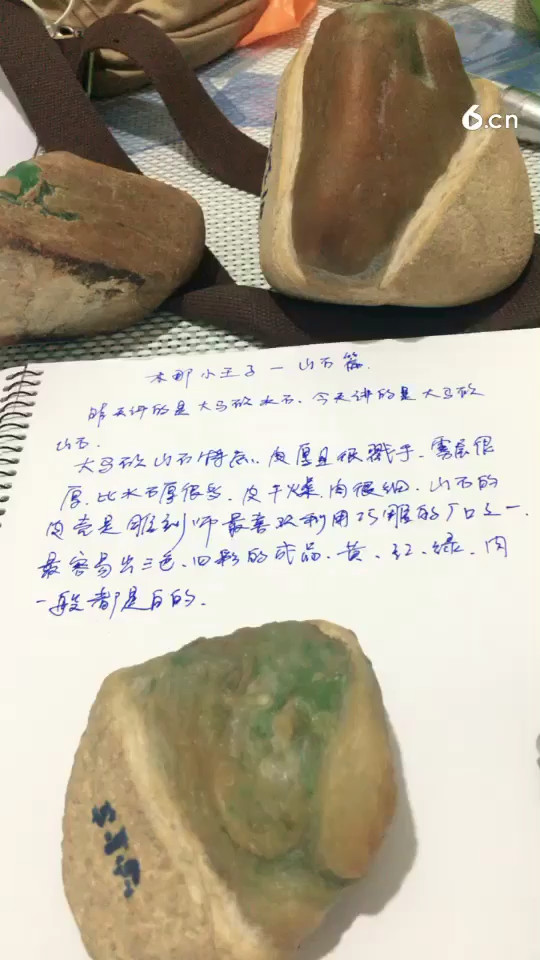 6.cn
木那小王子一山石篇.
昨天讲的是大马砍水石.今天讲的是大马砍
山石.
大马砍山石特点.皮厚且很戳手.雾层很
厚.比水石厚很多.皮干燥.肉很细.山石的
肉壳是雕刻师最喜欢利用巧雕的厂口之一.
最容易出三色.四彩的成品.黄、红、绿、肉
一般都是白的.